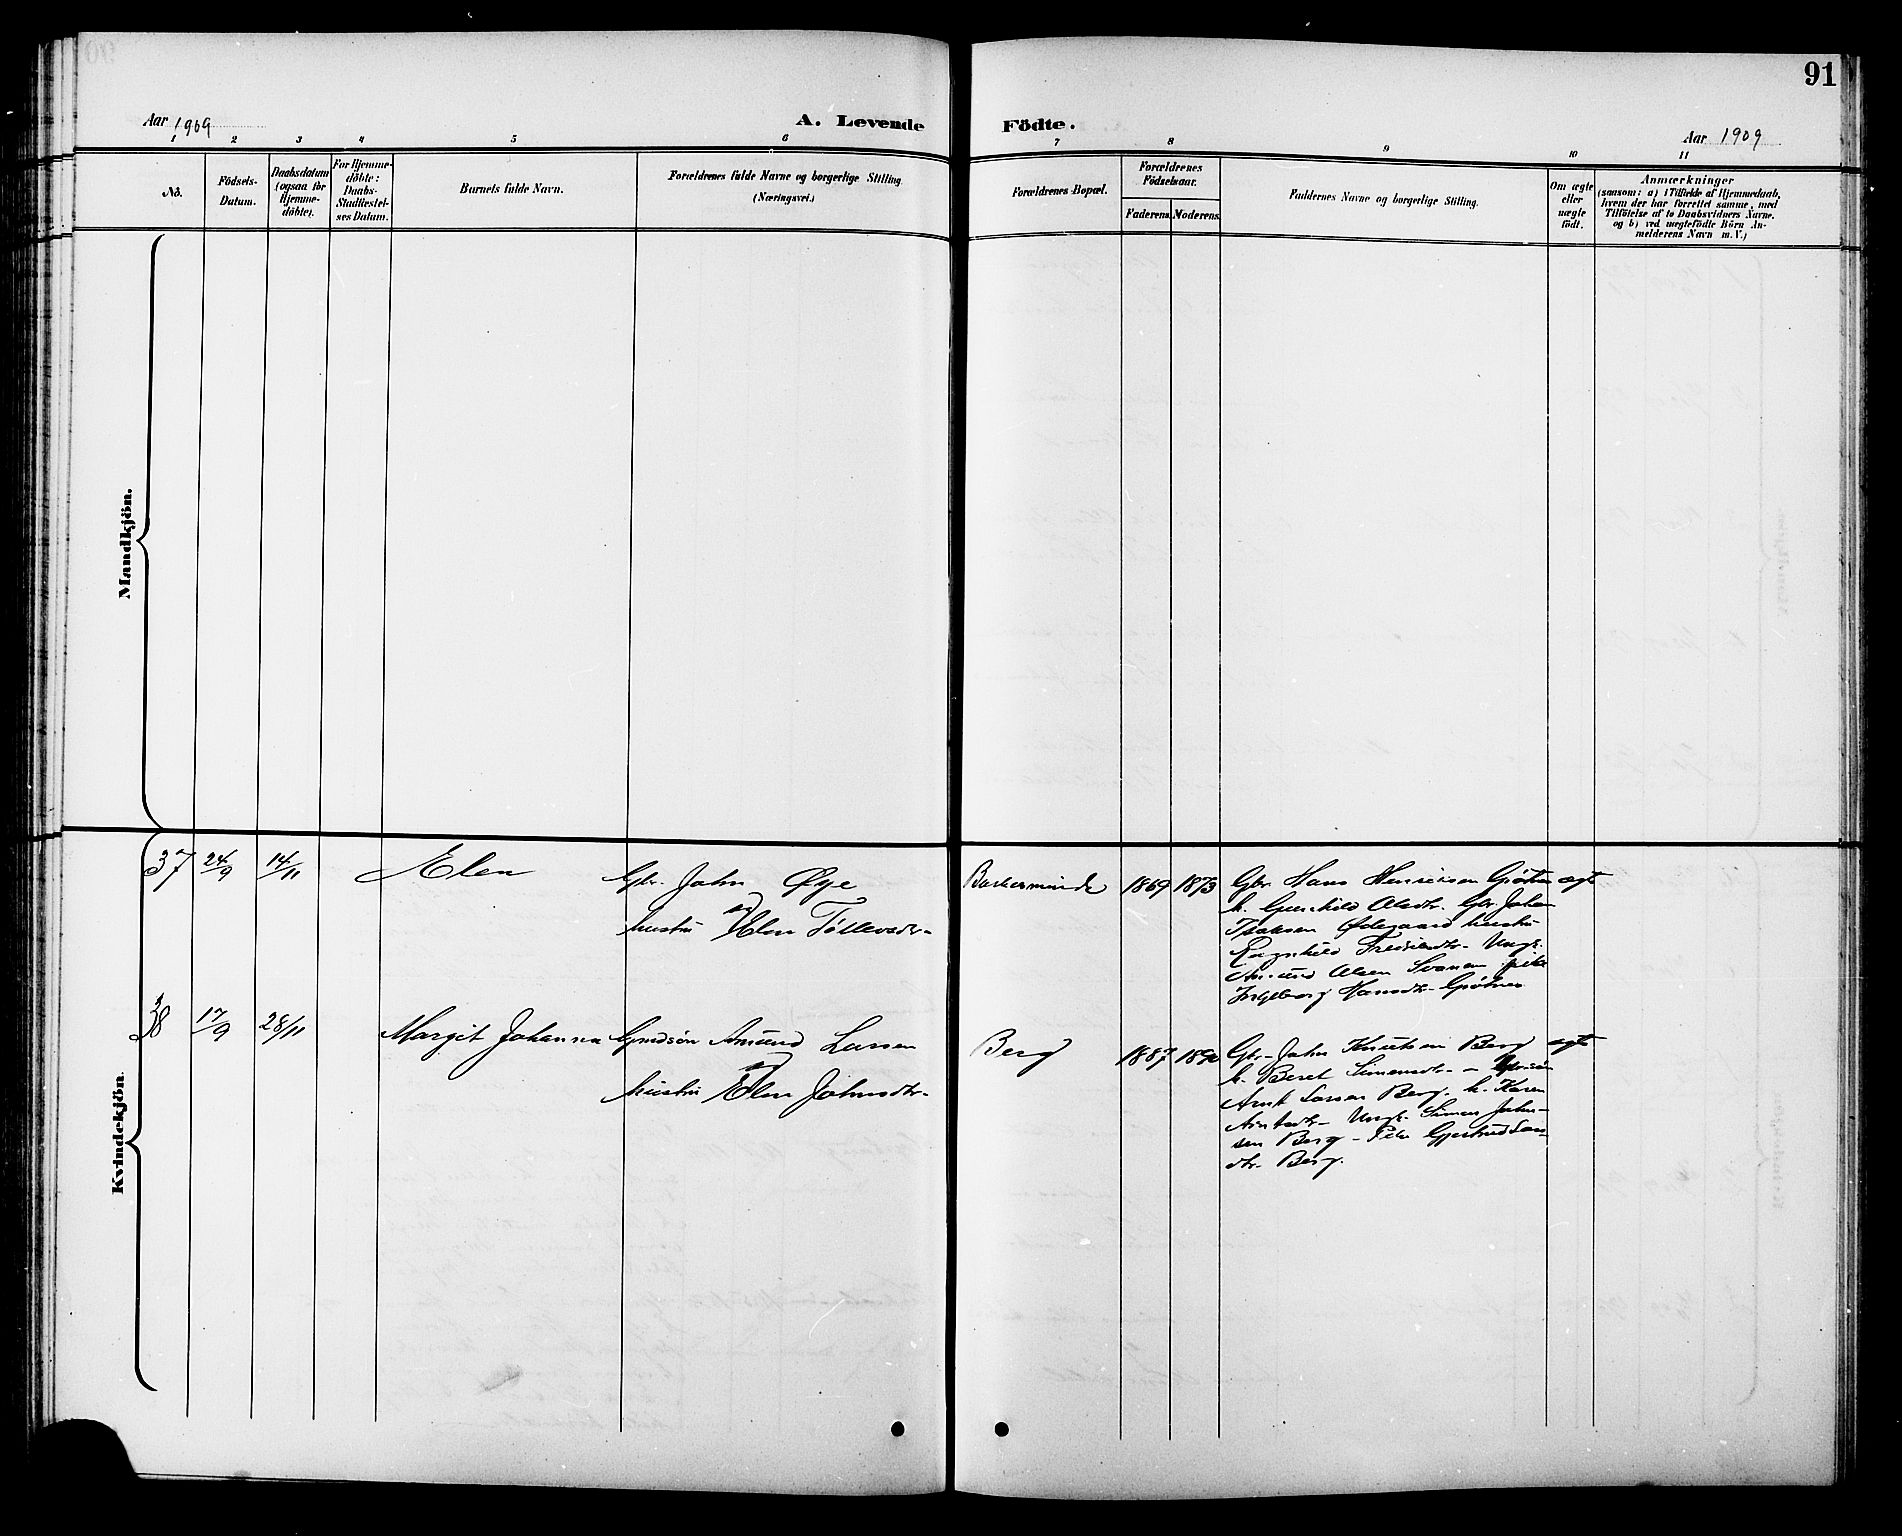 91
Aar 1909
A. Levende
Födte.
Aar 1909
1 2 3 4 5 6 7 8 9 10 11
No.
Födsels-
Datum.
Daabsdatum
(ogsaa for
Hjemme-
döbte).
For Hjemme-
döbte:
Daabs-
Stadfæstel-
ses Datum.
Barnets fulde Navn.
Forældrenes fulde Navne og borgerlige Stilling
(Næringsvei.)
Forældrenes Bopæl.
Forældrenes
Födselsaar.
Faderens. Moderens.
Faddernes Navne og borgerlige Stilling.
Om ægte
eller
uægte
födt.
Anmærkninger
(saasom: a) i Tilfælde af Hjemmedaab,
hvem der har forrettet samme, med
Tilföielse af to Daabsvidners Navne.
og b) ved uægtefödte Börn An-
melderens Navn m. V.)
Mandkjön.
Kvindekjön.
37 24/9 14/11 Elen Gbr. John Øye
hustru Elen Tollevsdr.
1869 1873
Gbr. Hans Henriksen ægte
h. Gunhild Olsdtr. Gbr. Johan
Isaksen Ødegaard hustru
Ragnhild Ungk.
Amund Olsen Svanem pike
Ingeborg Hansdtr.
38 17/9 28/11 Margit Johanna Grdsøn Amund Larsen
og
hustru Elen Johnsdtr.
Berg 1887
Gbr. John Knutsen Berg ægte
h. Beret Simonsdtr.
Arnt Larsen Berg. h. Karen
Arntsdtr. Ungk. Simon John-
sen Berg - Gjertrud Lars-
dtr. Berg.